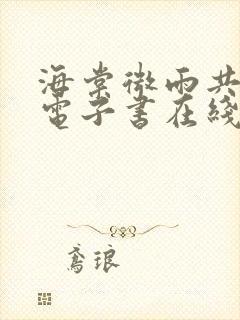 海棠微雨共
電子書在綫
鳶琅